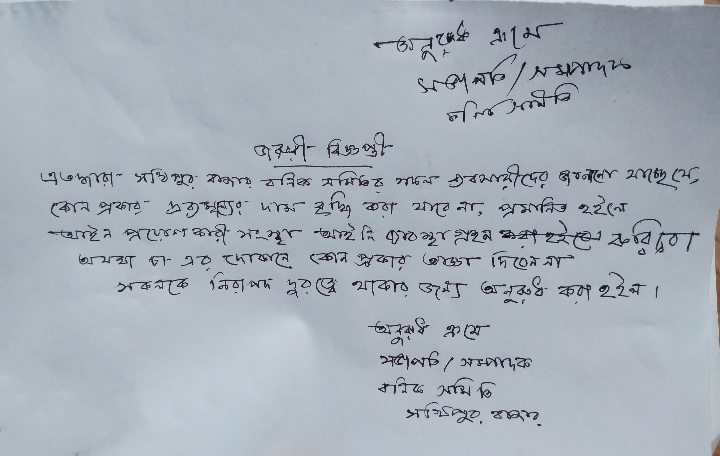 অনুরুধ ক্রমে
সভাপতি / সম্পাদক
বনিক সমিতি
জরুরী বিজ্ঞপ্তী
এতদ্বারা সখিপুর বাজার বনিক সমিতির সকল ব্যবসায়ীদের জানানো যাচ্ছে যে,
কোন প্রকার দ্রব্যমূল্যের দাম বৃদ্ধি করা যাবে না, প্রমানিত হইলে
আইন প্রয়োগকারী সংস্থা আইনি ব্যবস্থা গ্রহন করিবে।
অযথা চা এর দোকানে কোন প্রকার আড্ডা দিবেন না
সকলকে নিরাপদ দুরত্বে থাকার জন্য অনুরুধ করা হইল।
অনুরুধ ক্রমে
সভাপতি / সম্পাদক
বনিক সমিতি
সখিপুর বাজার